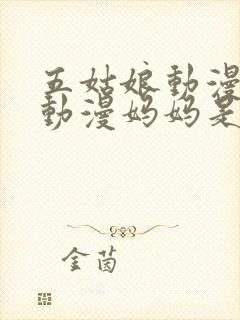 五姑娘動漫
動漫妈妈是
金茵